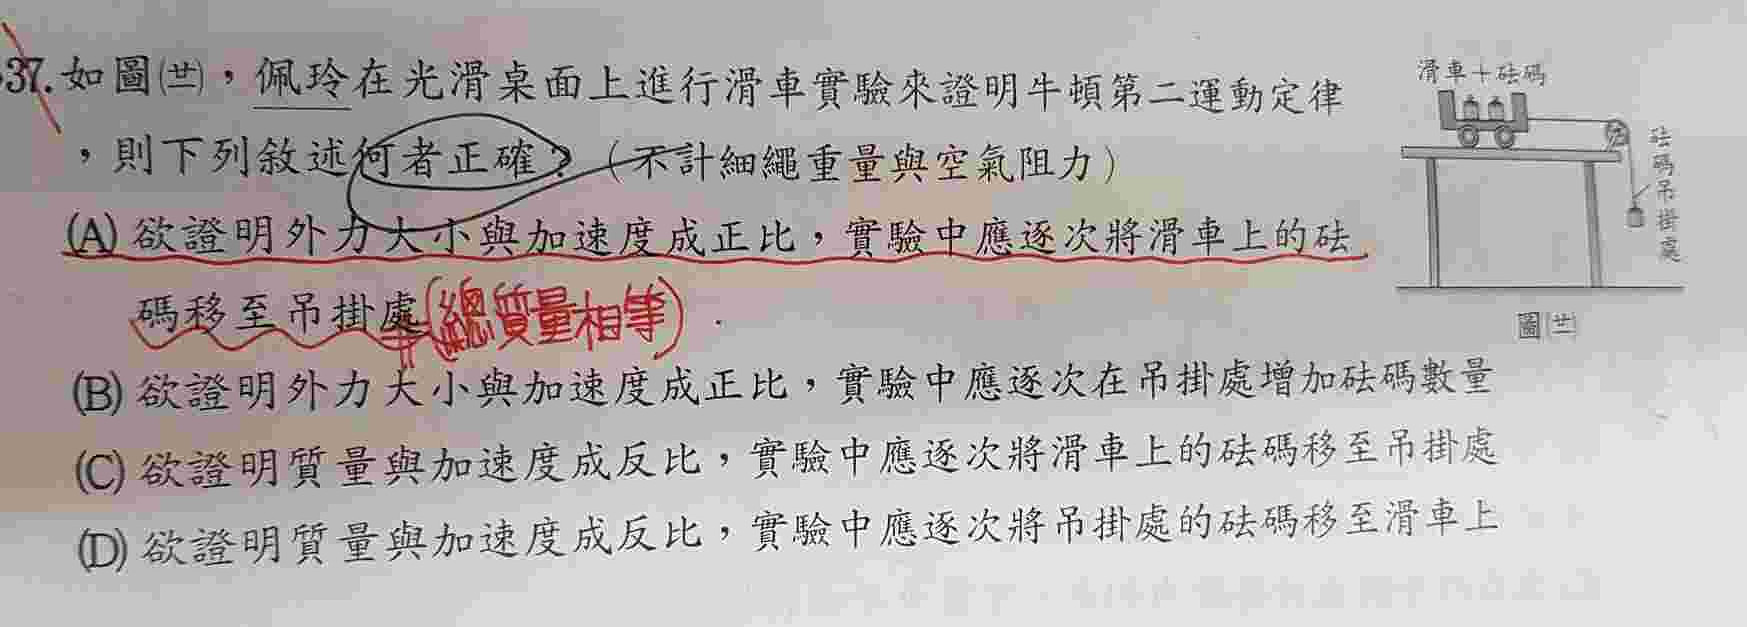 37.如圖(卄)，佩玲在光滑桌面上進行滑車實驗來證明牛頓第二運動定律
，則下列敘述何者正確？（不計細繩重量與空氣阻力）
(A)欲證明外力大小與加速度成正比，實驗中應逐次將滑車上的砝
碼移至吊掛處(總質量相等)
(B)欲證明外力大小與加速度成正比，實驗中應逐次在吊掛處增加砝碼數量
(C)欲證明質量與加速度成反比，實驗中應逐次將滑車上的砝碼移至吊掛處
(D)欲證明質量與加速度成反比，實驗中應逐次將吊掛處的砝碼移至滑車上
滑車＋砝碼
砝碼吊掛處
圖(卄)